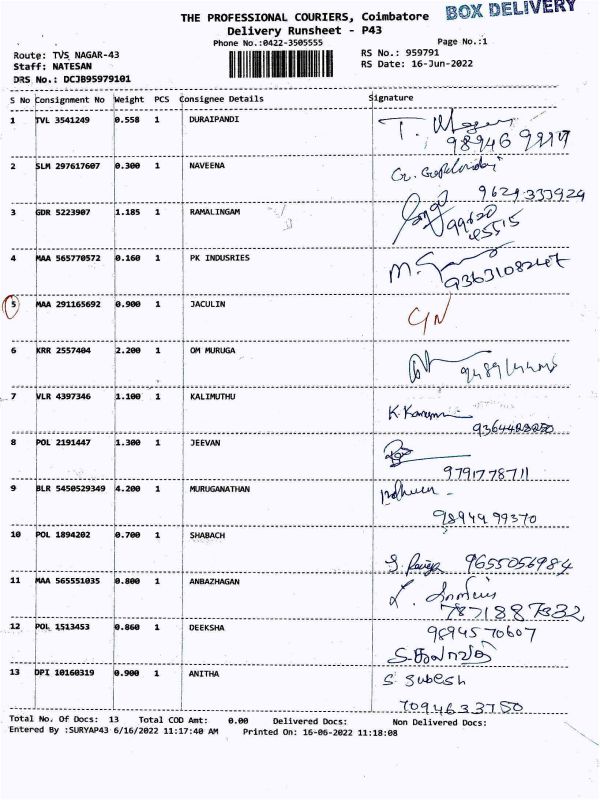 THE PROFESSIONAL COURIERS, Coimbatore
BOX DELIVERY
Delivery Runsheet - P43
Phone No.:0422-3505555
Page No.:1
Route: TVS NAGAR-43
RS No.: 959791
Staff: NATESAN
RS Date: 16-Jun-2022
DRS No.: DCJB95979101
S No Consignment No Weight PCS Consignee Details Signature
1 TVL 3541249 0.558 1 DURAIPANDI
2 SLM 297617607 0.300 1 NAVEENA
9629333929
3 GDR 5223907 1.185 1 RAMALINGAM
99620
45515
4 MAA 565770572 0.160 1 PK INDUSRIES
5 MAA 291165692 0.900 1 JACULIN
6 KRR 2557404 2.200 1 OM MURUGA
7 VLR 4397346 1.100 1 KALIMUTHU
8 POL 2191447 1.300 1 JEEVAN
9791778711
9 BLR 5450529349 4.200 1 MURUGANATHAN
98949 99370
10 POL 1894202 0.700 1 SHABACH
9655056984
11 MAA 565551035 0.800 1 ANBAZHAGAN
7871887332
12 POL 1513453 0.860 1 DEEKSHA
9894570607
13 DPI 10160319 0.900 1 ANITHA
S subesh
7094633750
Total No. Of Docs: 13 Total COD Amt: 0.00 Delivered Docs: Non Delivered Docs:
Entered By :SURYAP43 6/16/2022 11:17:40 AM Printed On: 16-06-2022 11:18:08